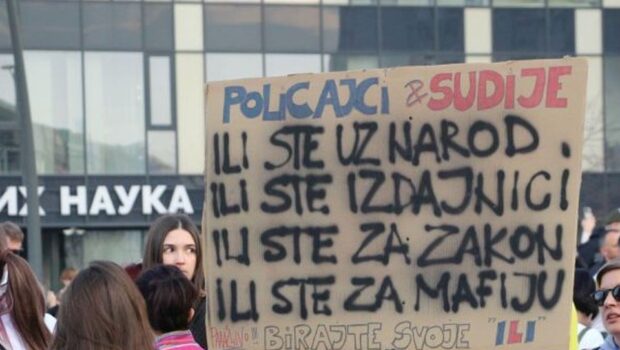 ИХ НАУКА
POLICAJCI & SUDIJE
ILI STE UZ NAROD.
ILI STE IZDAJNICI
ILI STE ZA ZAKON
ILI STE ZA MAFIJU
BIRAJTE SVOJE "ILI"